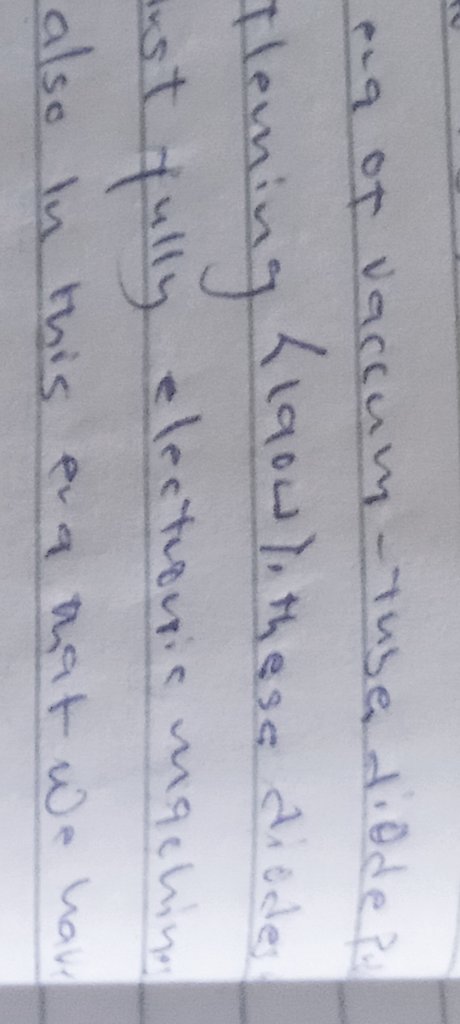 era of vaccum-tube diode
Fleming (1904), these diodes
fully electronic machine
also in this era that we have